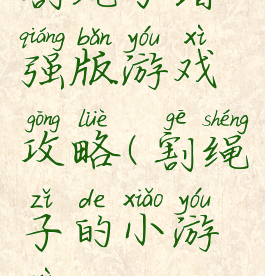 qiáng bǎn yóu xì
强版游戏
gōng lüè gē shéng
攻略(割绳
zǐ de xiǎo yóu
子的小游